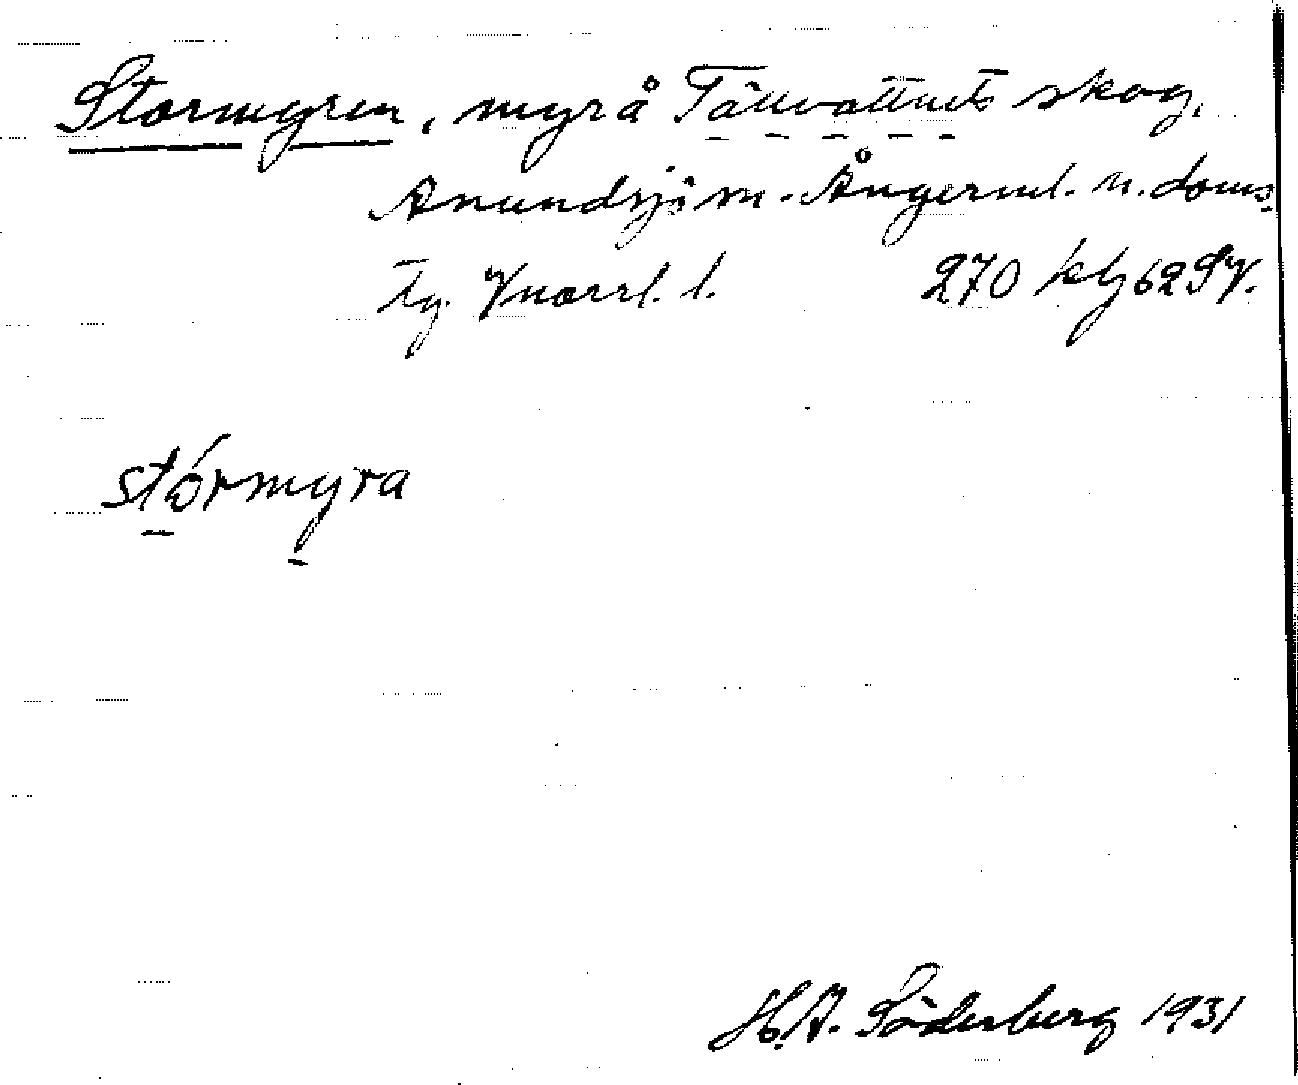 Stormyren, myr å Tällvattnets skog,
Anundsjö sn. Ångerml. n. doms.
tg. Vnorrl. l. 270 klg 62 SV.
stórmyra
H.A. Söderberg 1931